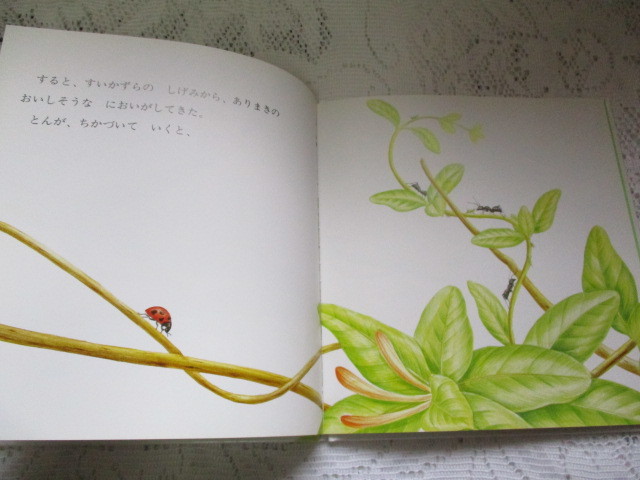 すると、すいかずらの　しげみから、ありまきの
おいしそうな　においがしてきた。
とんが、ちかづいて　いくと、